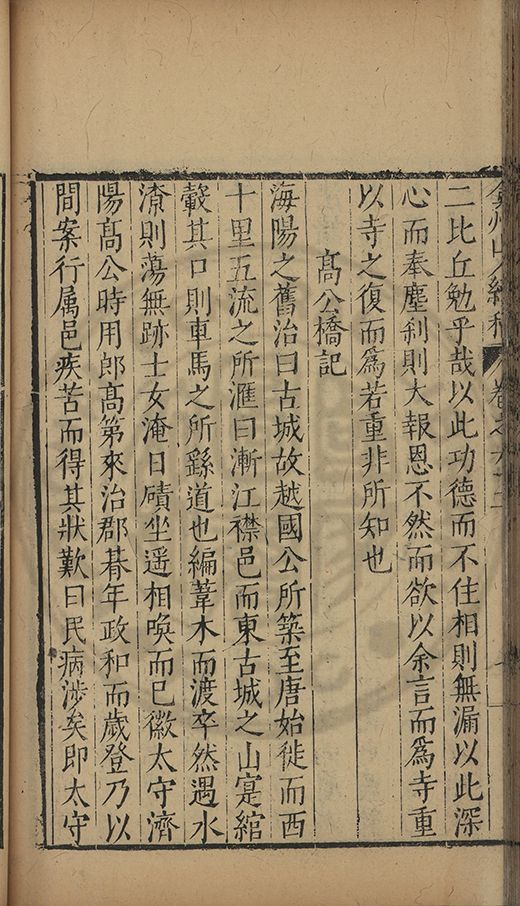 弇州山人續稿 卷之六十三
二比丘勉乎哉以此功德而不住相則無漏以此深
心而奉塵刹則大報恩不然而欲以余言而爲寺重
以寺之復而爲若重非所知也
高公橋記
海陽之舊治曰古城故越國公所築至唐始徙而西
十里五流之所滙曰漸江襟邑而東古城之山寔綰
轂其口則車馬之所繇道也編葦木而渡卒然遇水
潦則蕩無跡士女淹日磧坐遥相喚而已徽太守濟
陽高公時用郎高第來治郡朞年政和而歲登乃以
間案行属邑疾苦而得其狀歎曰民病涉矣即太守